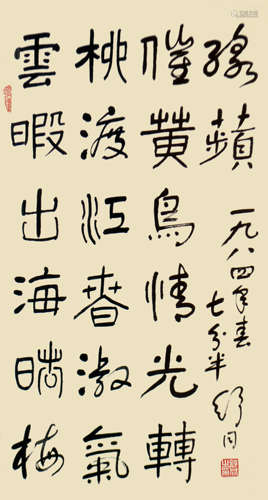 雲暇出海睹梅
桃渡江春淑氣
催黄鳥情光轉
綠蘋
一九八四年春
七分半
舒同